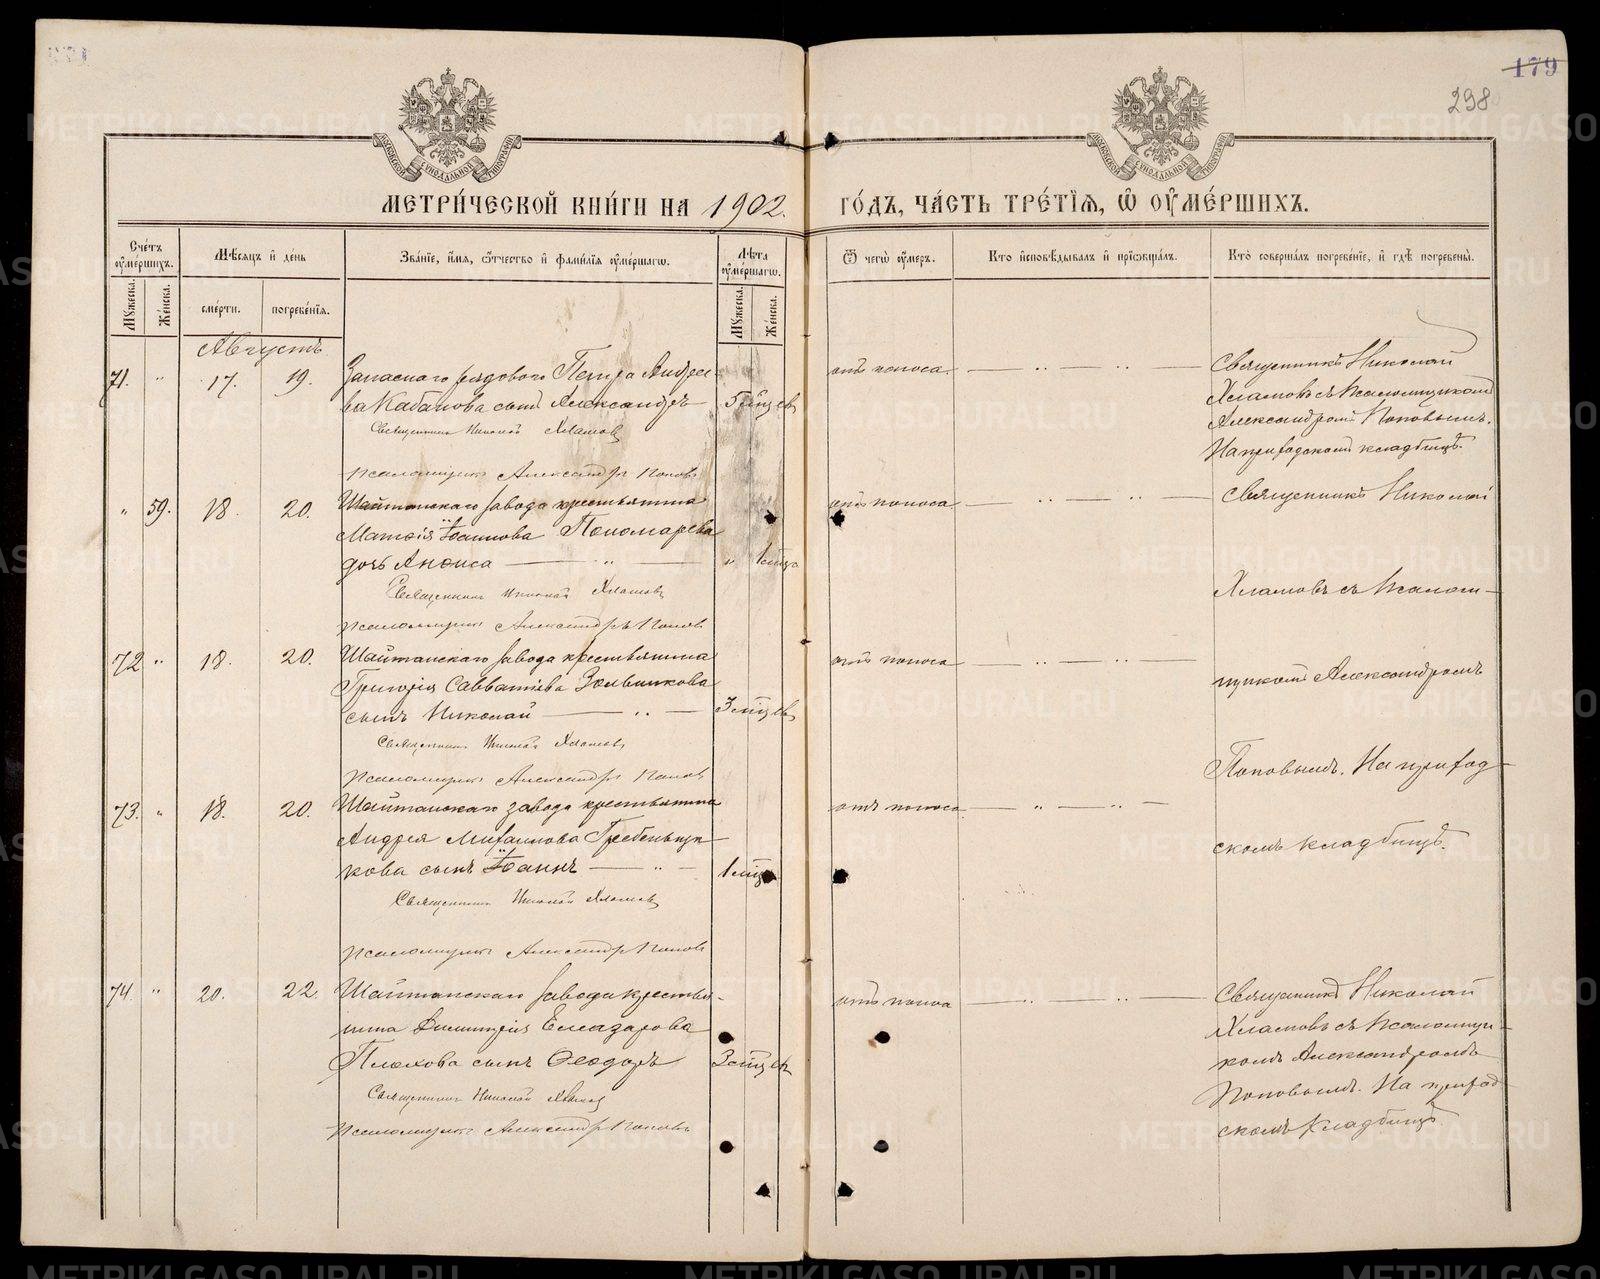 179
298
МЕТРИ́ЧЕСКОЙ КНИ́ГИ НА 1902. ГО́ДЪ, ЧА́СТЬ ТРЕ́ТІѦ, Ѡ ОУМЕ́РШИХЪ.
Сче́тъ оумéршихъ.
Мꙋжеска.
Же́нска.
Мѣ́сяцъ и҆ де́нь
сме́рти.
погребе́нїѧ.
Зва́нїе, и҆́мѧ, ѻ҆́тчество и҆ фами́лїѧ оумéршагѡ.
Лѣ́та оумéршагѡ.
Мꙋжеска.
Же́нска.
Ѿ чегѡ̀ оу́меръ.
Кто̀ и҆сповѣ́дывалъ и҆ прїѡбща́лъ.
Кто̀ соверша́лъ погребе́нїе, и҆ гдѣ̀ погребены̀.
Августъ
71. " 17. 19. Запаснаго рядового Петра Андрее-
ва Кабанова сынъ Александръ 5 мцевъ
Священникъ Николай Хламовъ
Псаломщикъ Александръ Поповъ
отъ поноса. — " — " —
Священникъ Николай
Хламовъ съ Псаломщикомъ
Александромъ Поповымъ.
На приходскомъ кладбищѣ.
" 59. 18. 20. Шайтанскаго завода крестьянина
Матѳія Іоаннова Пономарева
дочь Анѳиса — " — " 1 мца
Священникъ Николай Хламовъ
Псаломщикъ Александръ Поповъ
отъ поноса — " — " —
Священникъ Николай
Хламовъ съ Псалом-
72 " 18. 20. Шайтанскаго завода крестьянина
Григорія Савватіева
сынъ Николай — " — 3 мцевъ
Священникъ Николай Хламовъ
Псаломщикъ Александръ Поповъ
отъ поноса — " — " —
щикомъ Александромъ
Поповымъ. На приход-
73. " 18. 20. Шайтанскаго завода крестьянина
Андрея Михаилова Гребеньщи-
кова сынъ Іоаннъ — " — 1 мца
Священникъ Николай Хламовъ
Псаломщикъ Александръ Поповъ
отъ поноса — " — " —
скомъ кладбищѣ.
74. " 20. 22. Шайтанскаго завода крестья-
нина Димитрія Елеазарова
Плохова сынъ Ѳеодоръ 3 мцевъ
Священникъ Николай Хламовъ
Псаломщикъ Александръ Поповъ
отъ поноса — " — " —
Священникъ Николай
Хламовъ съ Псаломщи-
комъ Александромъ
Поповымъ. На приход-
скомъ кладбищѣ.
METRIKI.GASO-URAL.RU